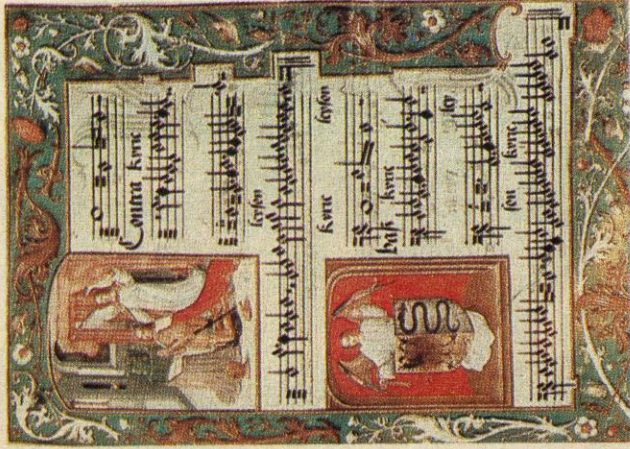 Contra kyrie
leyson
kyrie leyson
Bass kyrie
ley
son kyrie